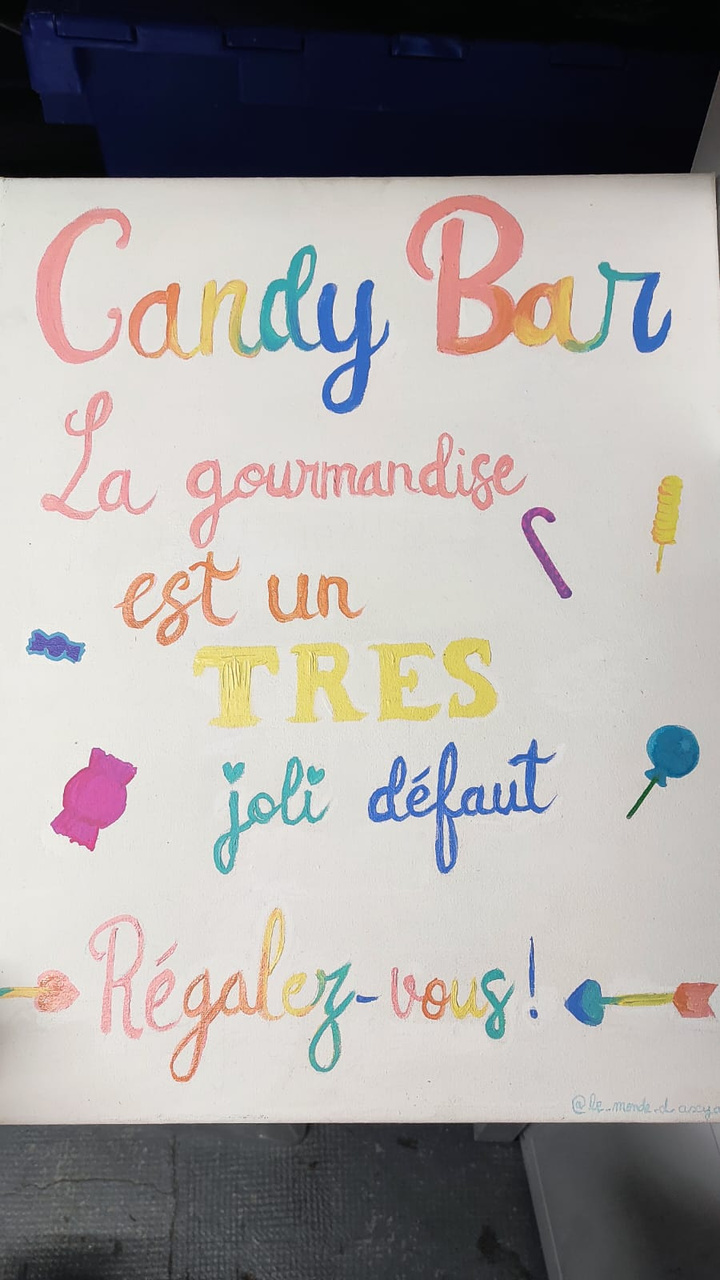 Candy Bar
La gourmandise
est un
TRES
joli défaut
Régalez-vous!